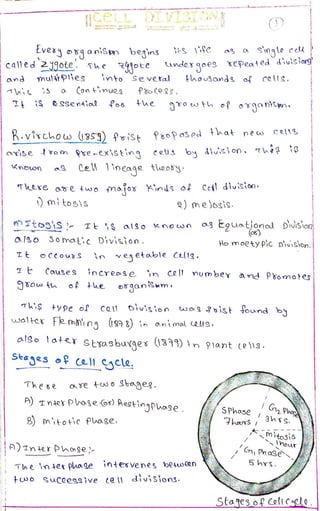 CELL DIVISION
1
Every organism begins its life as a single cell
called "Zygote". The zygote undergoes repeated divisions
and multiplies into several thousands of cells.
This is a continues Process.
It is essential for the growth of organism.
R.virchow (1859) first proposed that new cells
arise from Pre-existing cells by division. This is
known as Cell lineage theory.
There are two major kinds of Cell division.
1) mitosis 2) meiosis.
mitosis :- It is also known as Equational Division
(or)
also Somatic Division. Homoetypic Division.
It occours in vegetable cells.
It Causes increase in cell number and Promotes
growth of the organism.
This type of cell Division was first found by
walter Flemming (1878) in animal cells.
also later Strasburger (1879) in plant cells.
Stages of cell cycle.
There are two stages.
A) Inter Phase (or) Resting Phase.
B) mitotic Phase.
A) Inter Phase :-
The inter phase intervenes between
two successive cell divisions.
S Phase
7 hours
G2 Phase
3 hrs.
mitosis
1 hour
G1 Phase
5 hrs.
Stages of Cell cycle.